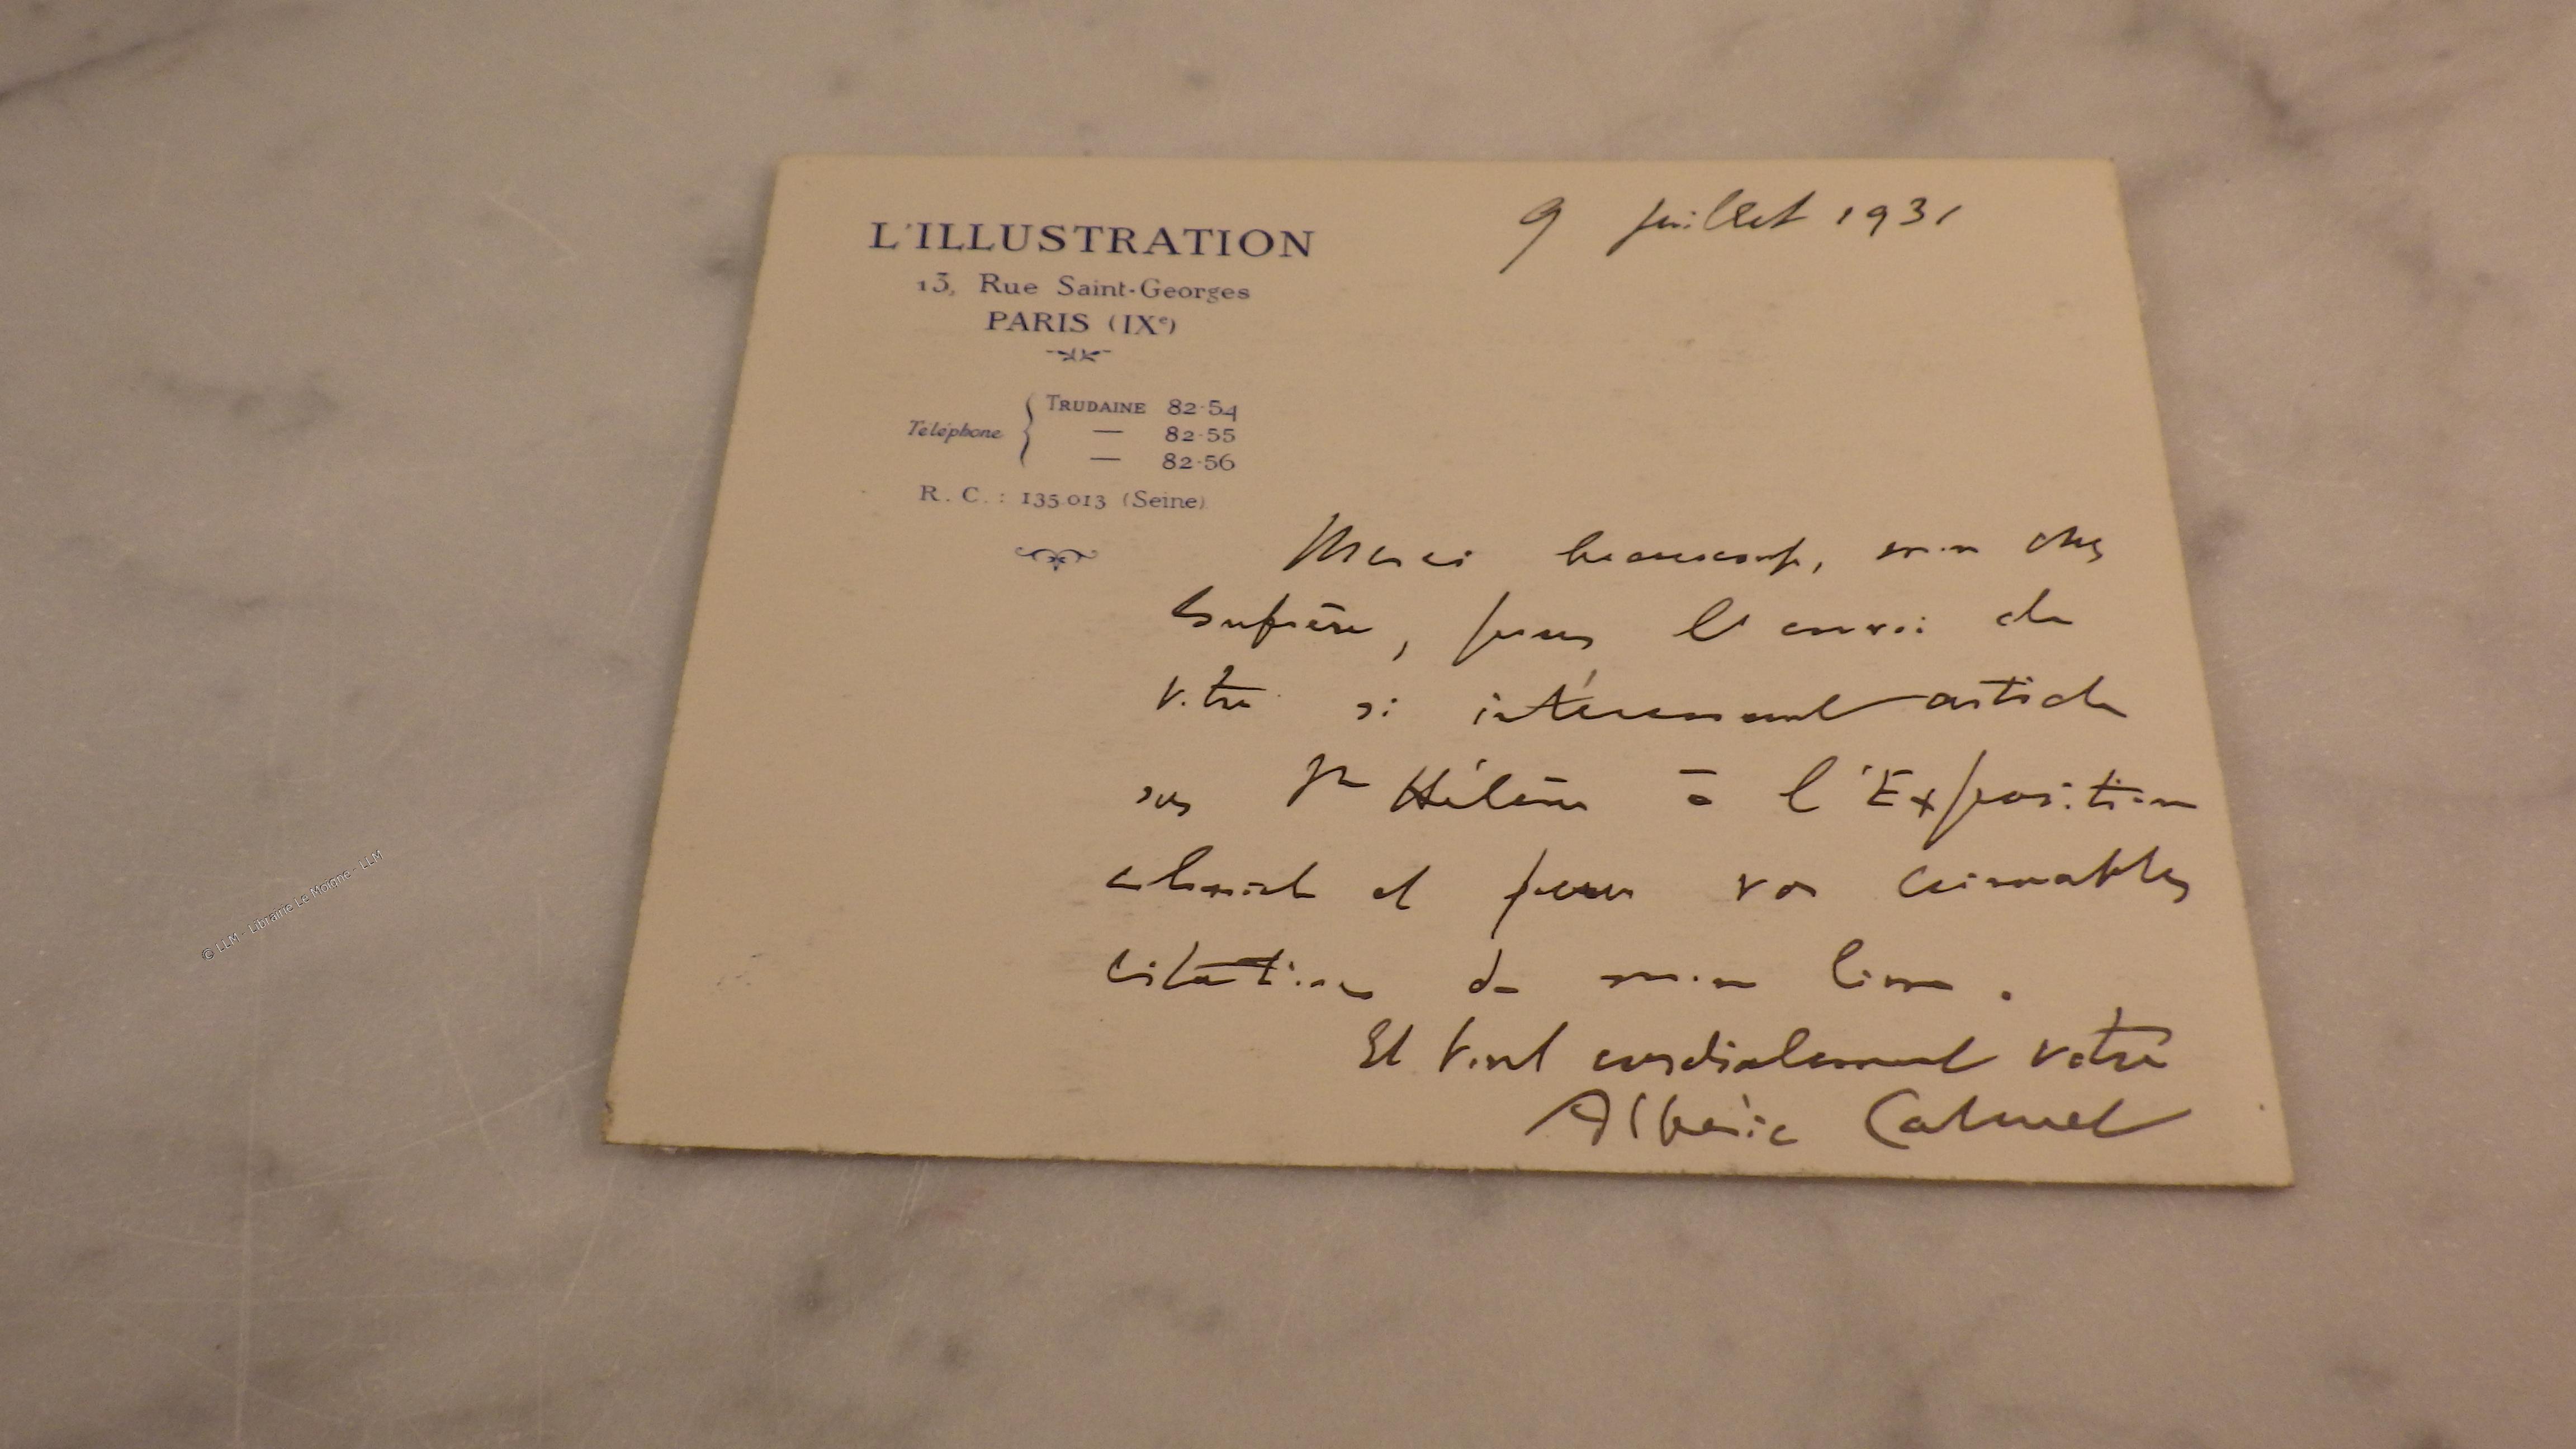 L'ILLUSTRATION
13, Rue Saint-Georges
PARIS (IXe)
Téléphone { TRUDAINE 82-54
— 82-55
— 82-56
R. C. : 135.013 (Seine)
9 juillet 1931
Merci beaucoup, mon cher
Confrère, pour l'envoi de
votre si intéressant article
sur Ste Hélène à l'Exposition
coloniale et pour vos aimables
citations de mon livre.
Et tout cordialement votre
Albéric Cahuet
© LLM - Librairie Le Moigne - LLM